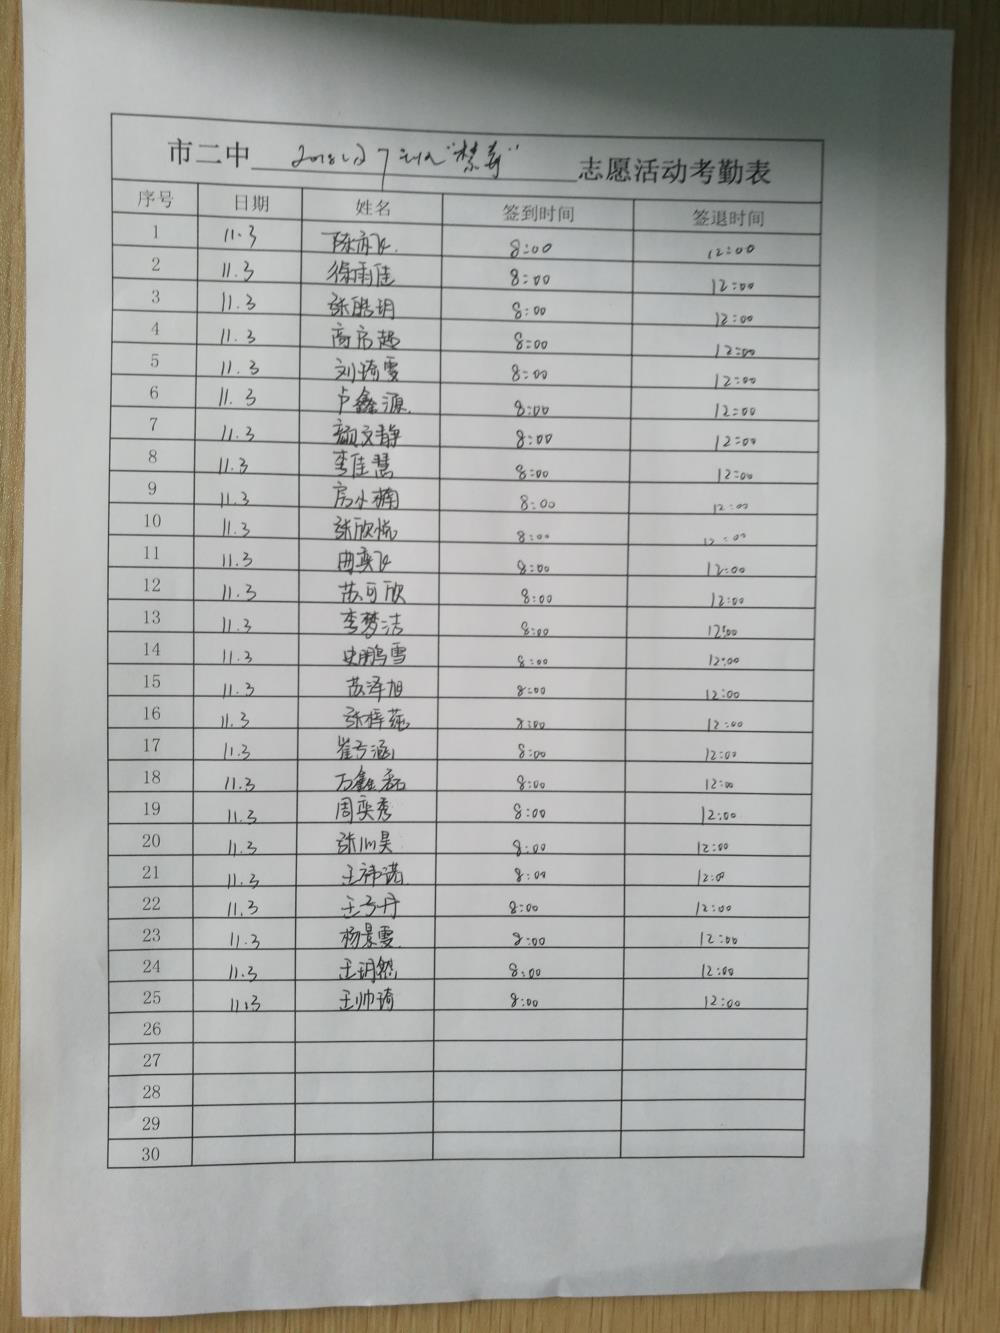 市二中 2018 "禁毒" 志愿活动考勤表
序号 日期 姓名 签到时间 签退时间
1 11.3 8:00 12:00
2 11.3 徐雨佳 8:00 12:00
3 11.3 张皓玥 8:00 12:00
4 11.3 8:00 12:00
5 11.3 刘琦雯 8:00 12:00
6 11.3 卢鑫源 8:00 12:00
7 11.3 颜文静 8:00 12:00
8 11.3 李佳慧 8:00 12:00
9 11.3 房小楠 8:00 12:00
10 11.3 张欣悦 8:00 12:00
11 11.3 冉奕飞 8:00 12:00
12 11.3 苏可欣 8:00 12:00
13 11.3 李梦洁 8:00 12:00
14 11.3 史鹏雪 8:00 12:00
15 11.3 苏泽旭 8:00 12:00
16 11.3 张梓菀 8:00 12:00
17 11.3 8:00 12:00
18 11.3 万鑫磊 8:00 12:00
19 11.3 周奕秀 8:00 12:00
20 11.3 8:00 12:00
21 11.3 王祎诺 8:00 12:0
22 11.3 8:00 12:00
23 11.3 杨景雯 8:00 12:00
24 11.3 王玥然 8:00 12:00
25 11.3 王帅琦 8:00 12:00
26
27
28
29
30